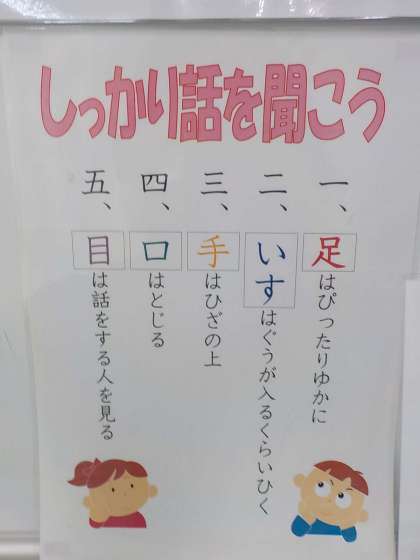 しっかり話を聞こう
一、足はぴったりゆかに
二、いすはぐうが入るくらいひく
三、手はひざの上
四、口はとじる
五、目は話をする人を見る